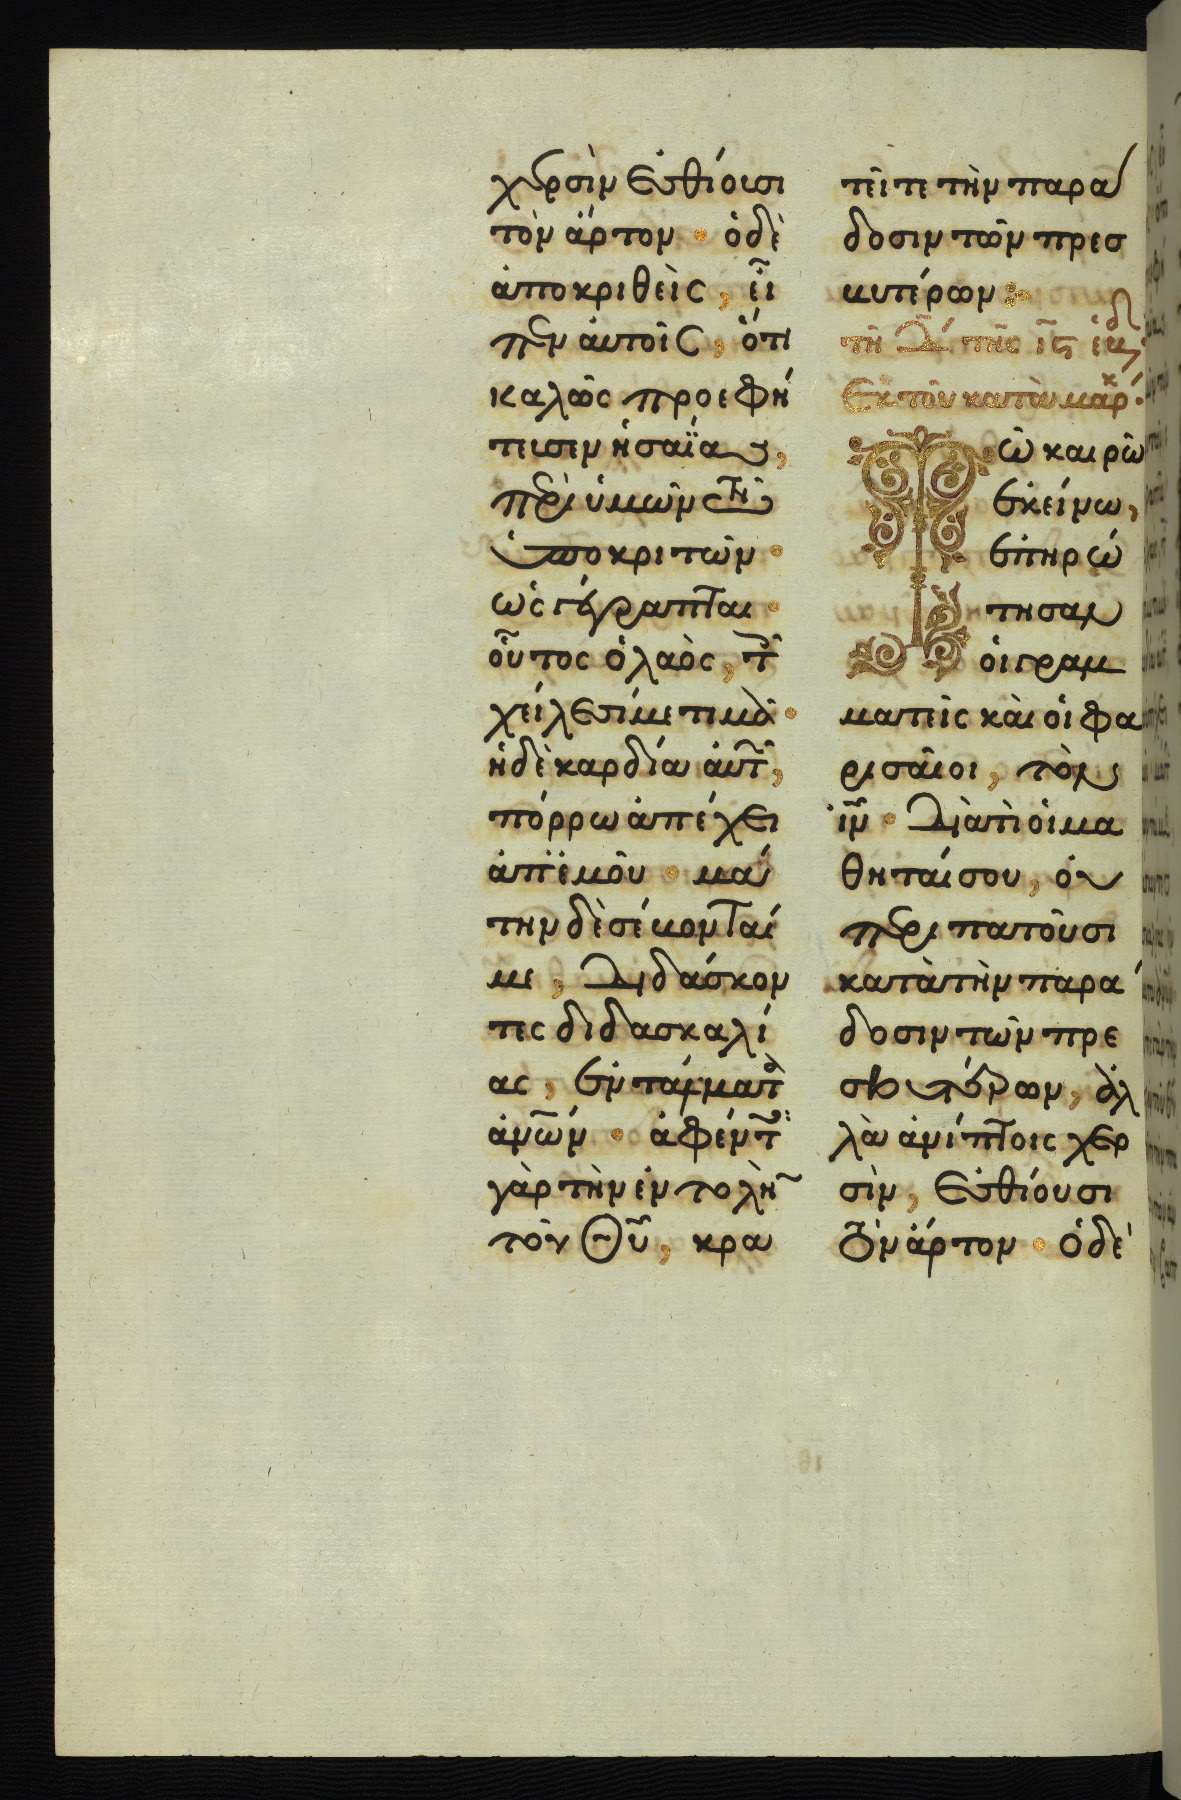 χερσὶν ἐσθίουσι
τὸν ἄρτον · ὁ δὲ
ἀποκριθεὶς, εἶ
πεν αὐτοῖς, ὅτι
καλῶς προεφή
τευσεν ἡσαΐας,
περὶ ὑμῶν τῶν
ὑποκριτῶν ·
ὡς γέγραπται ·
οὗτος ὁ λαὸς, τοῖς
χείλεσί με τιμᾶ ·
ἡ δὲ καρδία αὐτῶν,
πόρρω ἀπέχει
ἀπ' ἐμοῦ · μά
την δὲ σέβονταί
με, διδάσκον
τες διδασκαλί
ας, ἐντάλματα
ἀνῶν · ἀφέντες
γὰρ τὴν ἐντολὴν
τοῦ Θῦ, κρα
τεῖτε τὴν παρά
δοσιν τῶν πρεσ
βυτέρων :
τῇ δ τῆς ις ἑβδ
Ἐκ τοῦ κατὰ μαρκ.
Τῶ καιρῶ
ἐκείνω,
ἐπηρώ
τησαν
οἱ γραμ
ματεῖς καὶ οἱ φα
ρισαῖοι, τὸν
ἰν · Διατί οἱ μα
θηταί σου, οὐ
περιπατοῦσι
κατὰ τὴν παρά
δοσιν τῶν πρε
σβυτέρων, ἀλ
λὰ ἀνίπτοις χερ
σὶν, ἐσθίουσι
τὸν ἄρτον · ὁ δὲ